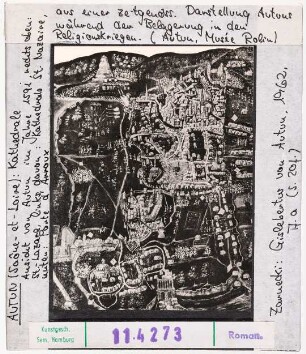 aus einer zeitgenöss. Darstellung Autuns
während der Belagerung in den
Religionskriegen. (Autun, Musée Rolin)
AUTUN (Saône-et-Loire): Kathedrale
Ansicht von Autun im Jahre 1591, rechts oben:
St-Lazare, links davon Kathedrale St. Nazaire,
unten: Porte d'Arroux
Zarnecki: Gislebertus von Autun, 1962,
7 a (S. 20f)
Kunstgesch.
Sem. Hamburg
11.4273
Roman.